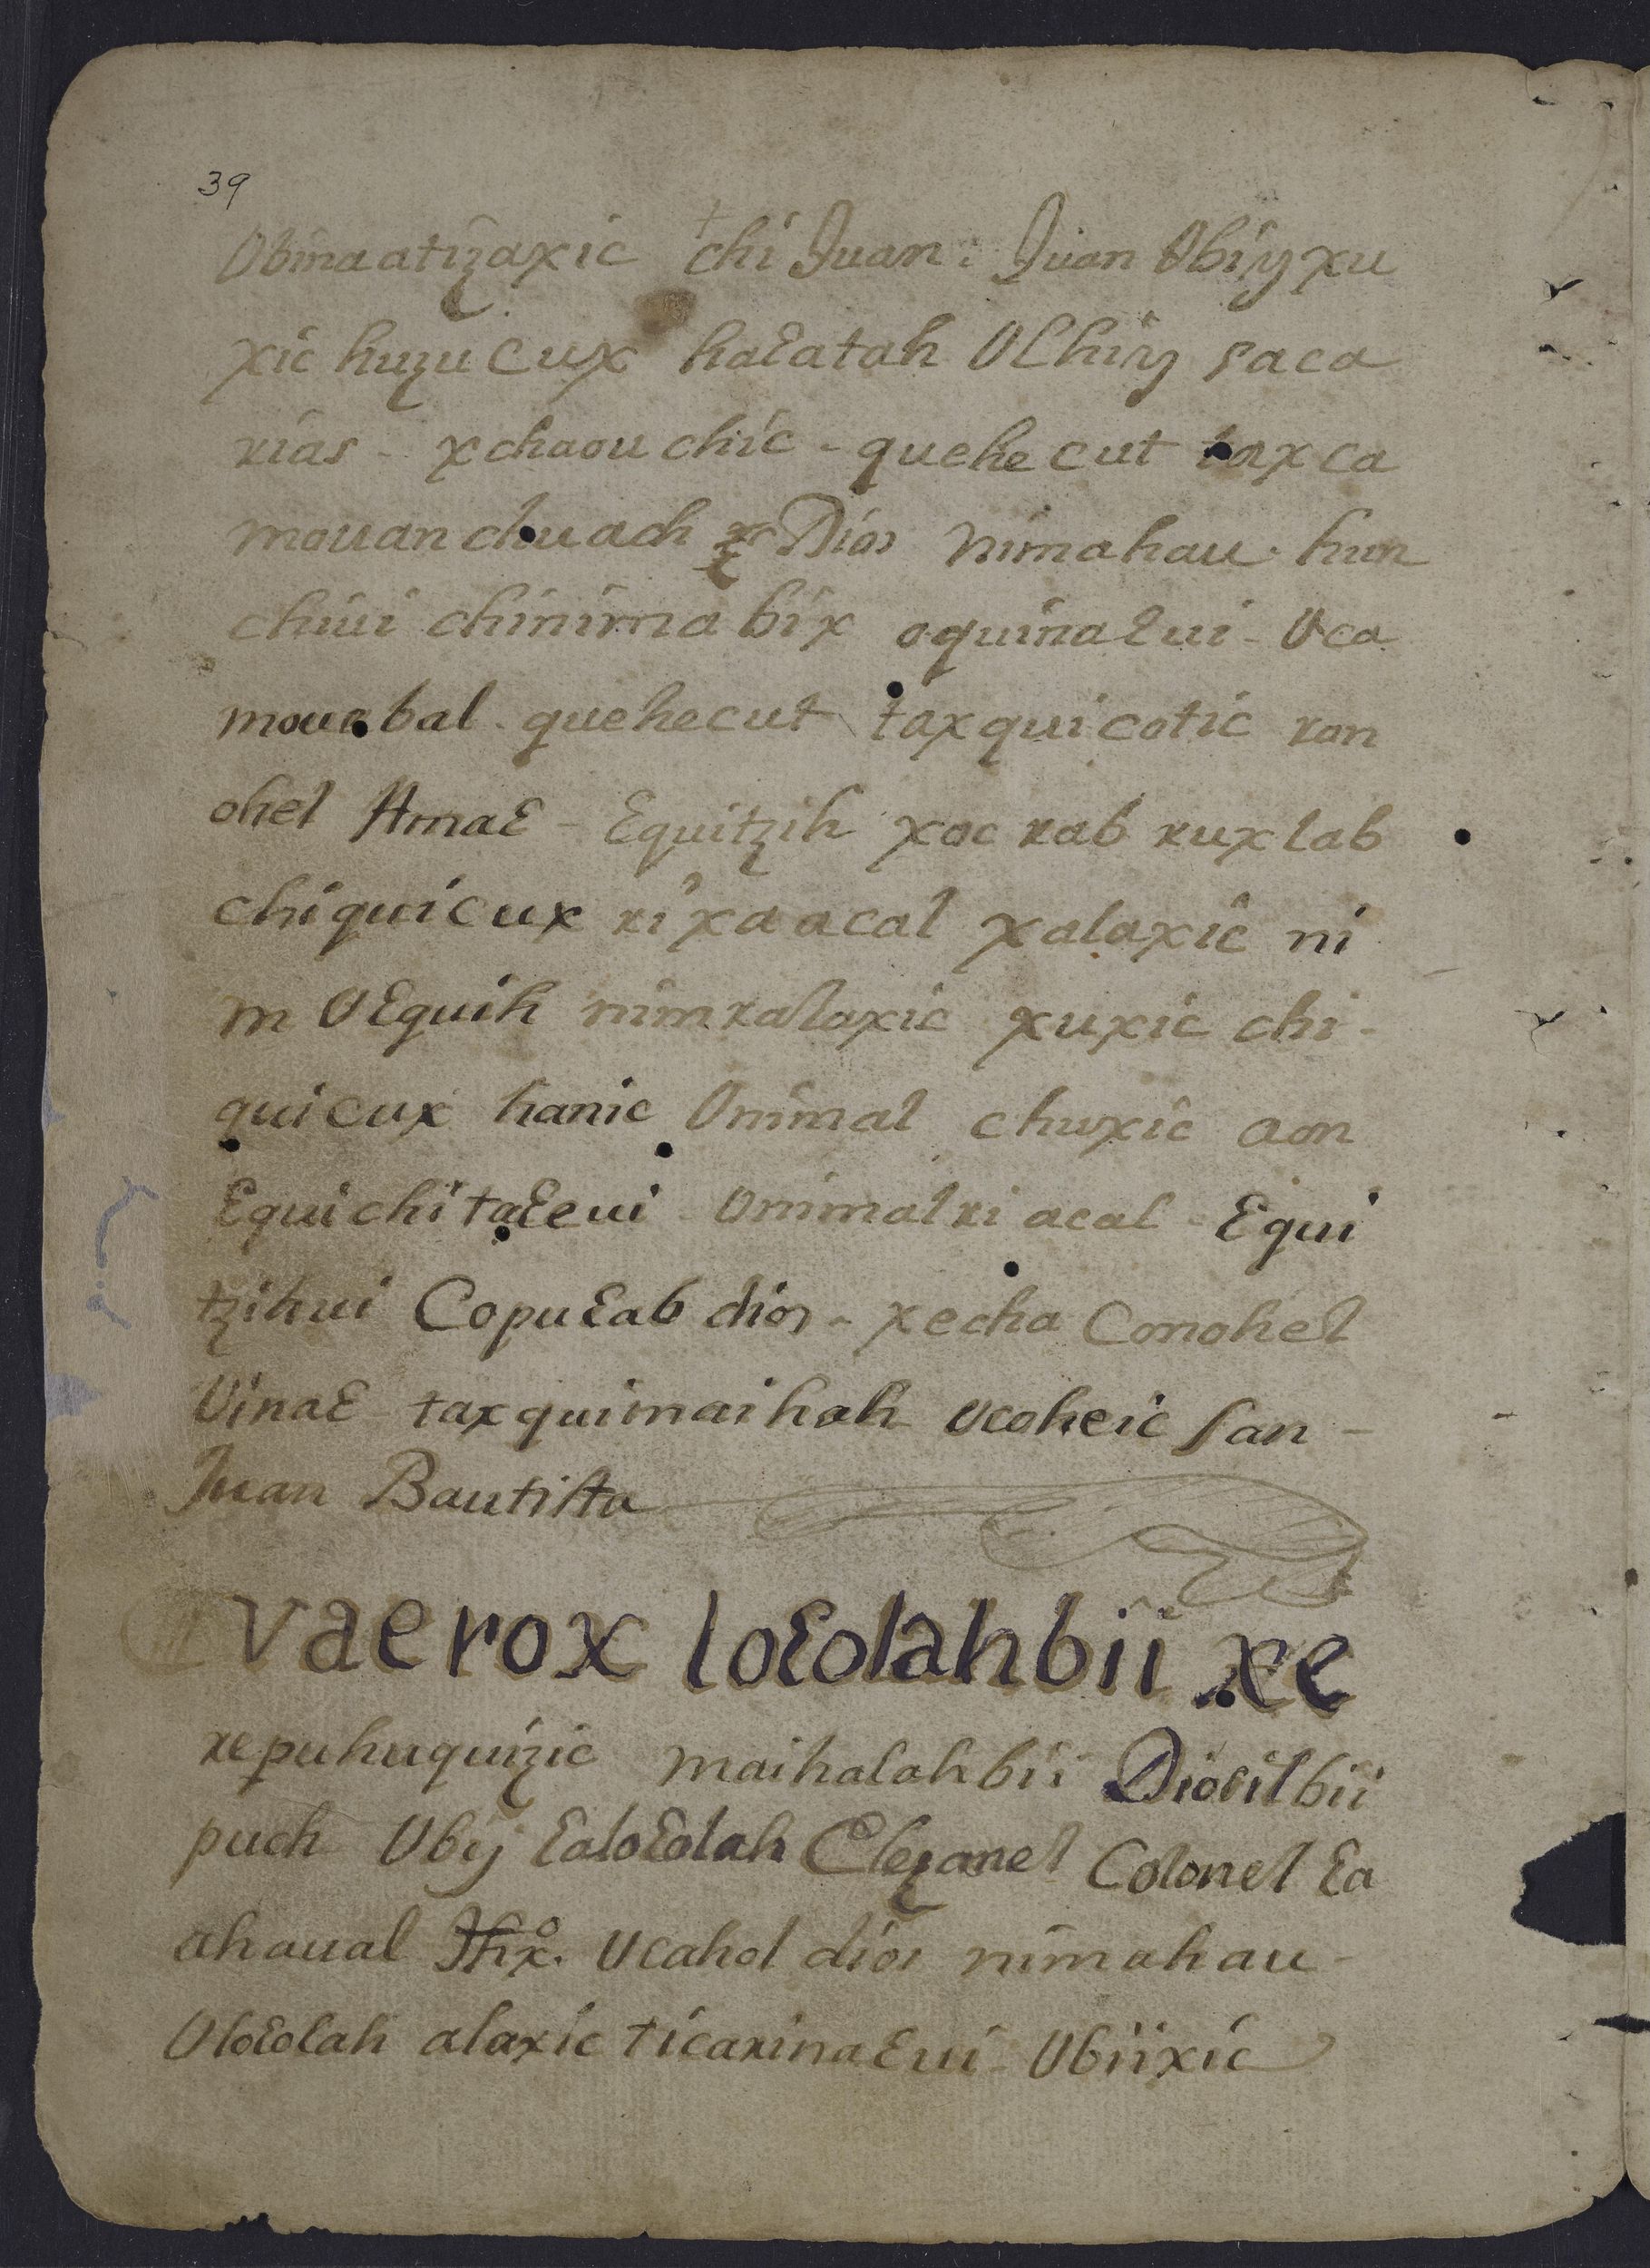 39
Obinaatizaxic chi Juan: Juan Obiyxu
xic huzucux haɛatah Uchiiy saca
rias - xchaou chic - quehecut taxca
mouan chuach Dios nimahau. hun
chiui chinimabix aquinaɛui - Uca
mouabal. quehecut taxquicotic ron
ohel Amaɛ - Equitzih xoc rab ruxlab
chiquicux ri xa acal xalaxic ni
m Uɛquih nimralaxic xuxic chi-
quicux hanic Unimal chuxic aon
ɛquichitaɛeui - Unimal ri acal - ɛqui
tzihui Copuɛab dios - xecha Conohel
Vinaɛ taxquimaihah ucoheic San -
Juan Bautista
vae rox loɛolahbii xe
repuhuquizic maihalahbii Diosilbii
puch Ubij ɛaloɛolah Clezanel Colonel ɛa
ahaual Jhxo. Ucahol dios nimahau -
Uloɛolah alaxic ticarinaɛui - Ubiixic